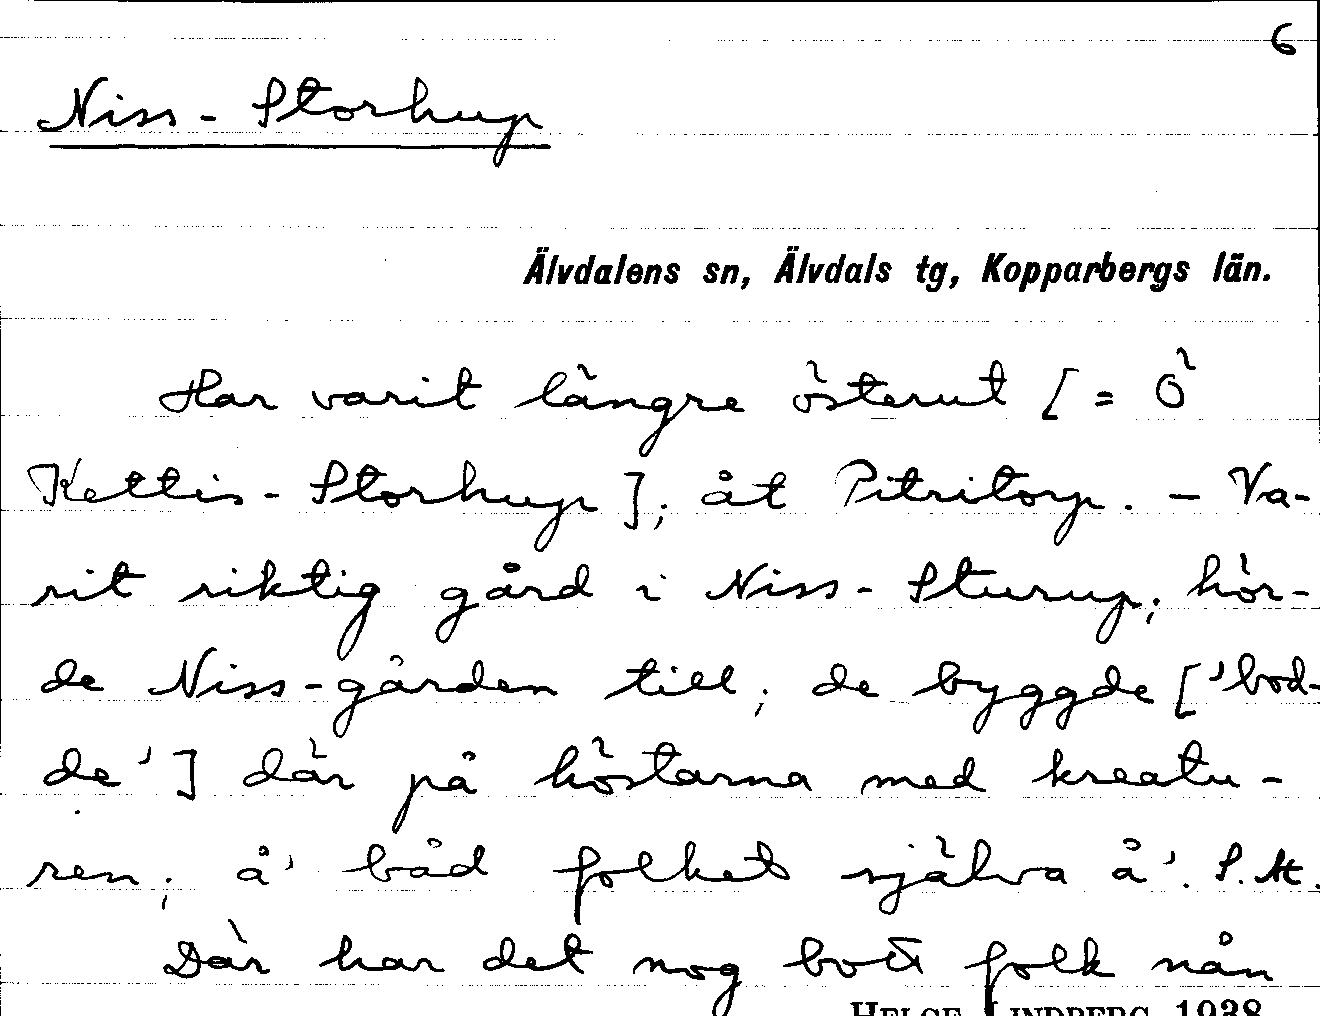 6
Niss-Storhup
Älvdalens sn, Älvdals tg, Kopparbergs län.
Har varit längre österut [= Ö
Kettis-Storhup]; åt Pitritorp. - Va-
rit riktig gård i Niss-Sturup; hör-
de Niss-gården till; de byggde ['bod-
de'] där på höstarna med kreatu-
ren; å' båd folket själva å'. S.M.
Där har det nog bott folk nån
HELGE LINDBERG 1938